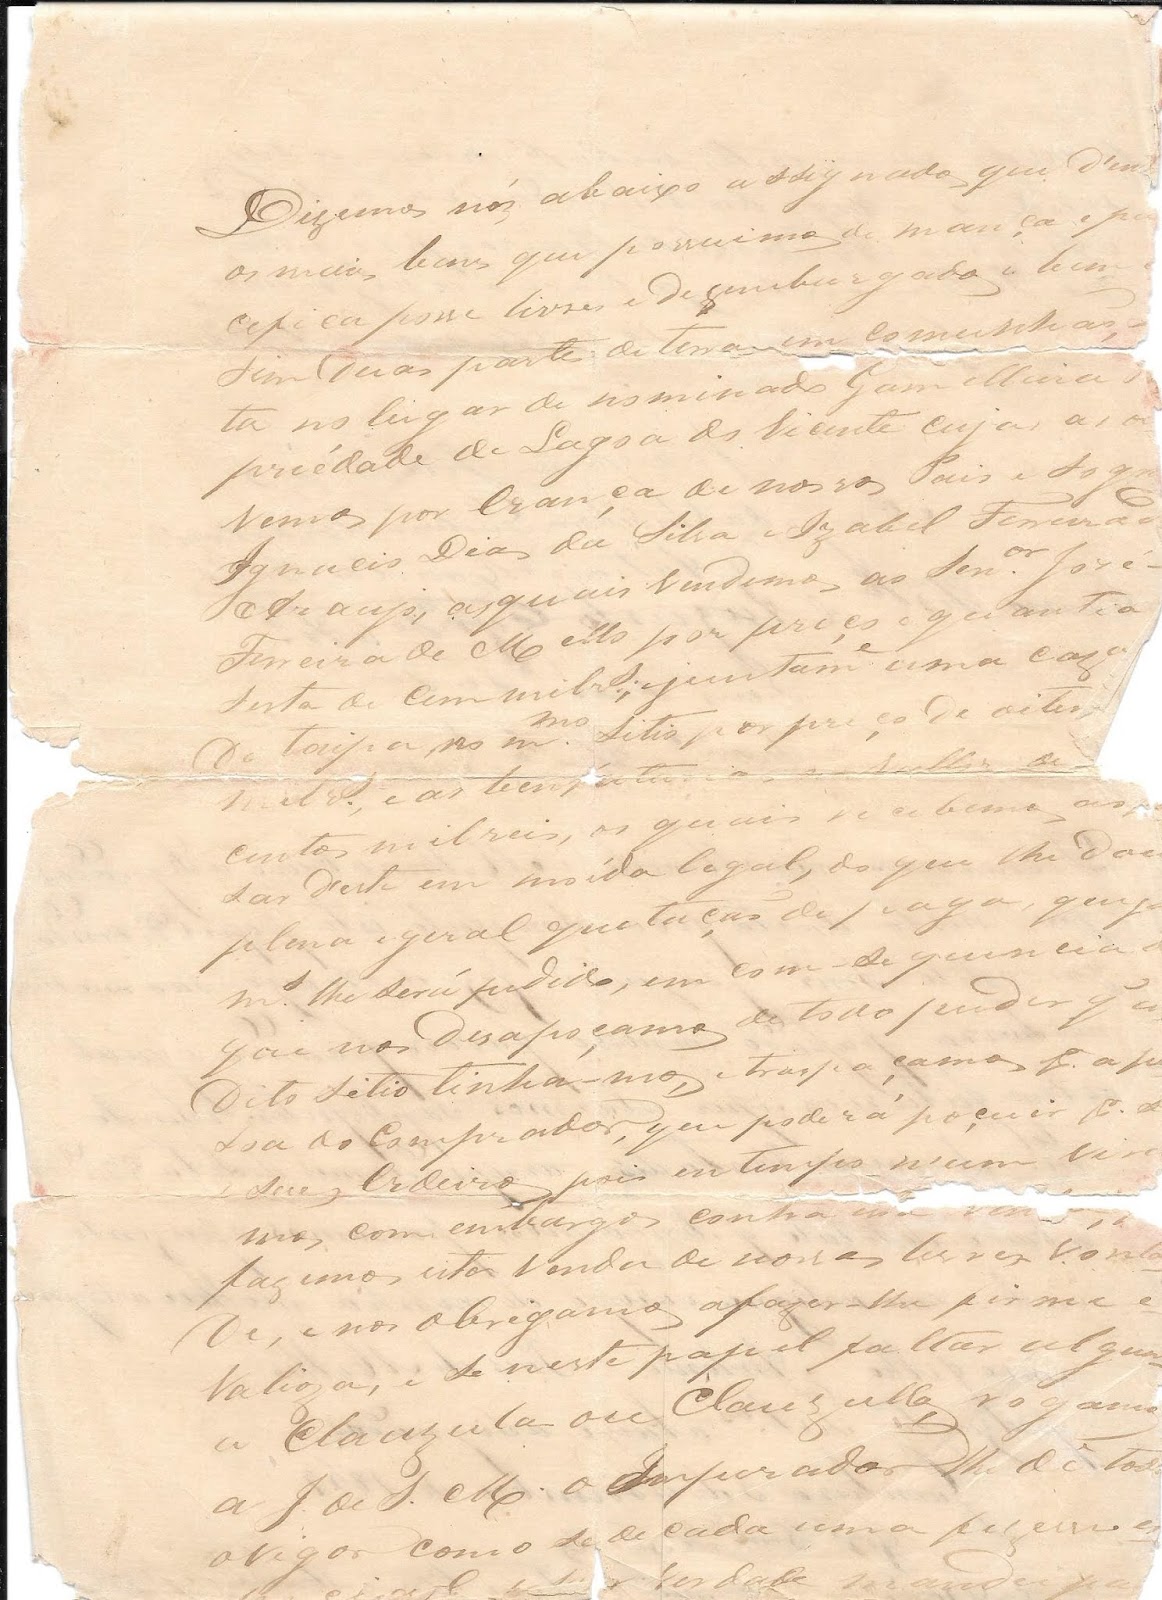 Dizemos nós abaixo assignados que d'ent
os mais bens que possuimos de mança e pa
cefica posse livres e dezemburgados e bem a
sim duas partes de terra em comunhas,
ta no lugar de nominado Gamelleira
priédade de Lagoa do Vicente cujas as o
vemos por erança de nossos Pais e Sogr
Ignacio Dias da Silva e Izabel Ferreira d
Araujo, as quais vendemos ao Sen.or José
Ferreira de Mello por preço e quantia
serta de cem mil rs., e juntam.e uma caza
de taipa no m.mo sitio por preço de oiten
mil rs., e as bemfeitorias
centos mil reis, os quais recebemos ao pa
sar d'este em moéda legal, do que lhe dam
plena e geral quitaçaõ de paga, que ja
m.s lhe será pedido, em com-sequencia d
que nos desapoçamos de todo puder q' n
dito sitio tinha-mos, e traspaçamos p.a a pe
ssoa do comprador, que poderá poçuir p. s
e seus erdeiros, pois em tempo neum vire
mos com embargos contra esta venda,
fazemos esta venda de nossas livres vonta
de, e nos obrigamos a fazer-lhe firme e
valioza, e se neste papel faltar algum
a Clauzula ou Clauzullas, rogamos
a J. de S. M. o Imperador lhe dê todo
o vigor como se de cada uma fizesse
verdade mandei pa